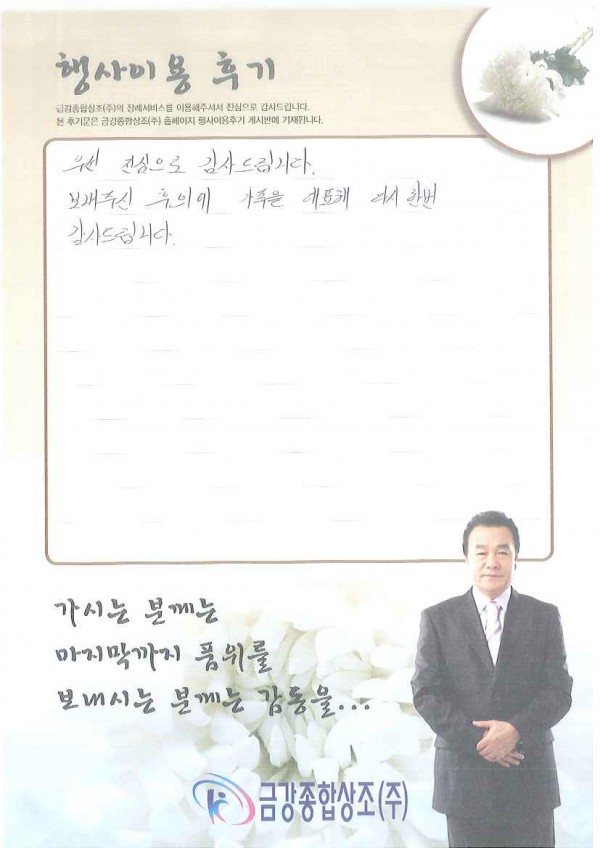 행사이용 후기
금강종합상조(주)의 장례서비스를 이용해주셔서 진심으로 감사드립니다.
본 후기문은 금강종합상조(주) 홈페이지 행사이용후기 게시판에 기재됩니다.
우선 진심으로 감사드립니다.
보내주신 후의에 가족을 대표해 다시 한번
감사드립니다.
가시는 분께는
마지막까지 품위를
보내시는 분께는 감동을...
금강종합상조(주)